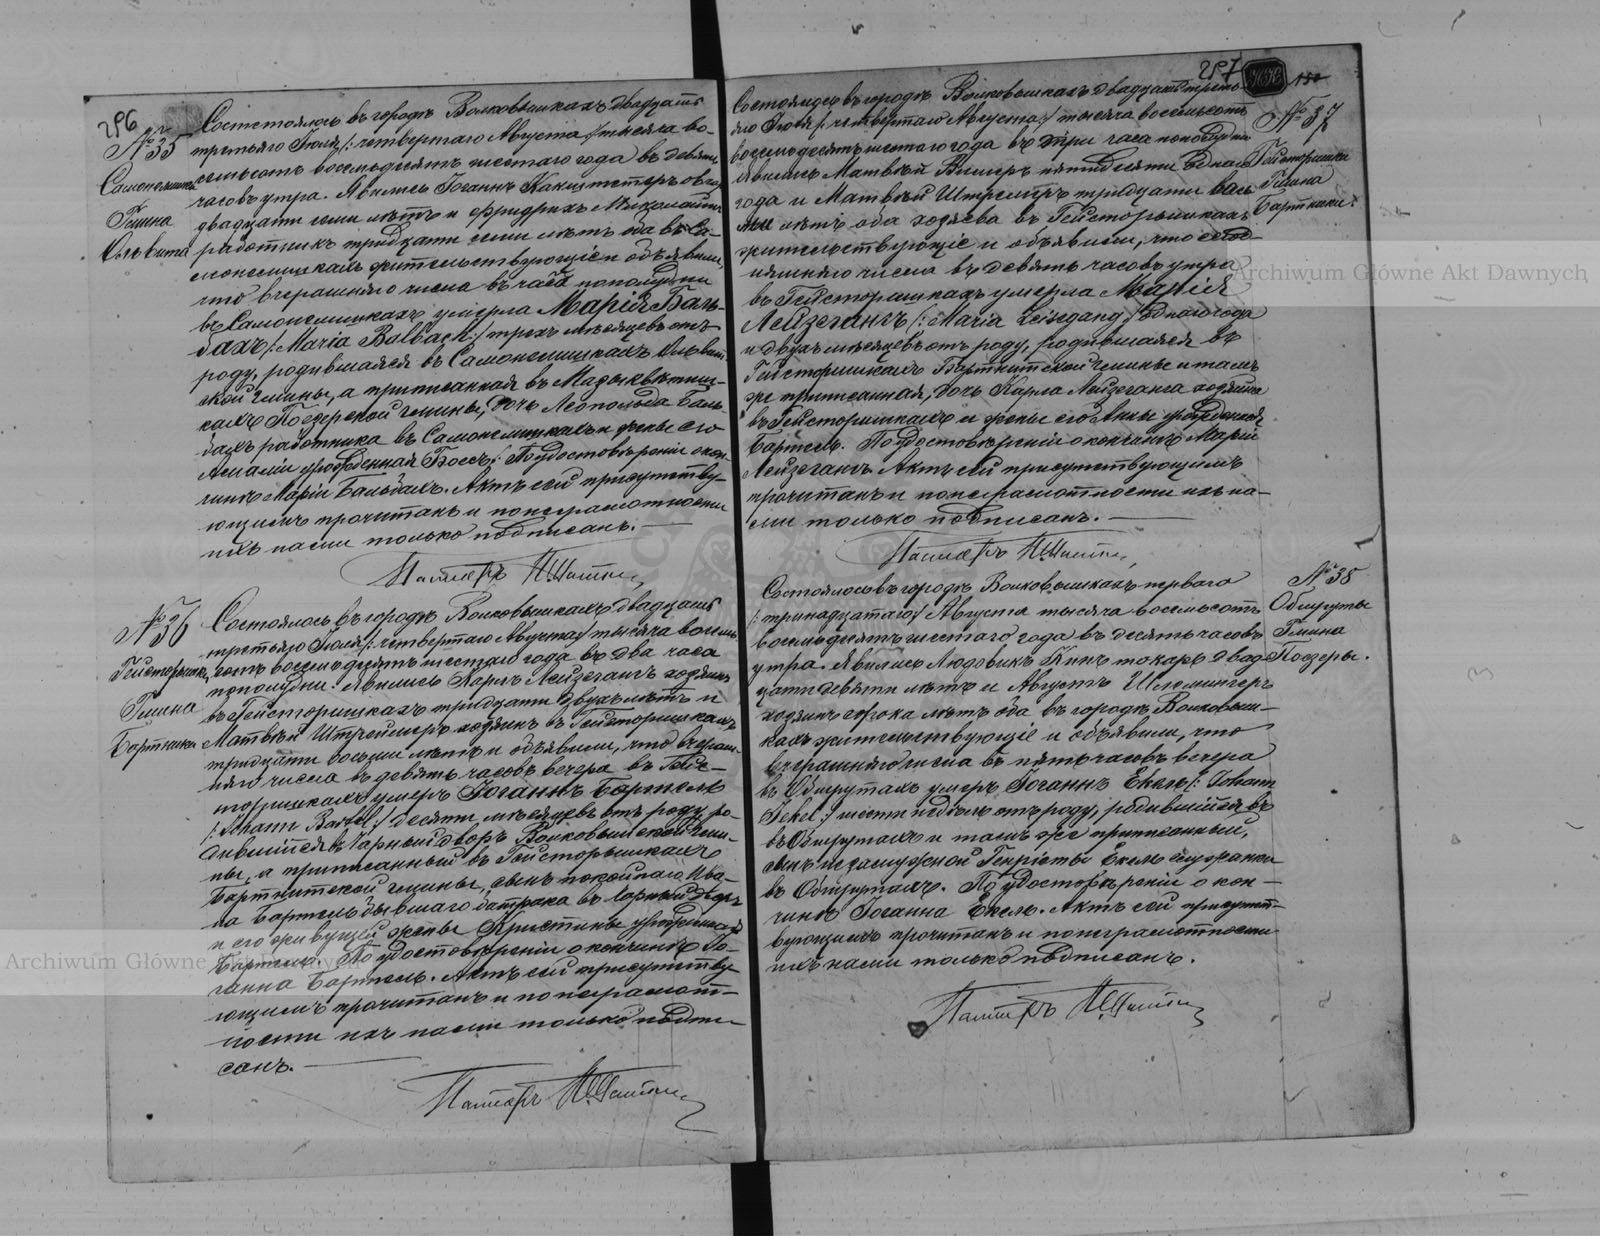 296
№ 35
Самонелишки
Гмина
Ольвита
Состоялось въ городѣ Волковышкахъ двадцать
третьяго Іюля /: четвертаго Августа / тысяча во-
семьсотъ восемьдесятъ шестаго года въ девять
часовъ утра. Явились Іоганнъ
двадцати семи лѣтъ и Фридрихъ
работникъ тридцати семи лѣтъ оба въ Са-
монелишкахъ жительствующіе и объявили,
что вчерашняго числа въ часъ пополудни
въ Самонелишкахъ умерла Марія Баль-
бахъ /: Maria Balbach :/ трехъ мѣсяцевъ отъ
роду, родившаяся въ Самонелишкахъ Ольвит-
ской гмины, а приписанная въ
кахъ Поезерской гмины, дочь Леопольда Баль-
бахъ работника въ Самонелишкахъ и жены его
урожденная Боссъ. По удостовѣреніи о кон-
чинѣ Маріи Бальбахъ. Актъ сей присутству-
ющимъ прочитанъ и по неграмотности
ихъ нами только подписанъ.
Пасторъ
№ 36
Гейсторишки
Гмина
Бартники
Состоялось въ городѣ Волковышкахъ двадцать
третьяго Іюля /: четвертаго Августа / тысяча восемь-
сотъ восемьдесятъ шестаго года въ два часа
пополудни. Явились Карлъ Лейзегангъ хозяинъ
въ Гейсторишкахъ тридцати двухъ лѣтъ и
Матвѣй Штреймеръ хозяинъ въ Гейсторишкахъ
тридцати восьми лѣтъ и объявили, что вчераш-
няго числа въ девять часовъ вечера въ Гейс-
торишкахъ умеръ Іоганнъ Бартель
/: Johann Bartel :/ десяти мѣсяцевъ отъ роду, ро-
дившійся въ Чарныйдворъ Волковышской гми-
ны, а приписанный въ Гейсторишкахъ
Бартнитской гмины, сынъ покойнаго Ива-
на Бартель бывшаго батрака въ Чарныйдворъ
и его живущей жены Христины урожденная
Бартель. По удостовѣреніи о кончинѣ Іо-
ганна Бартель. Актъ сей присутству-
ющимъ прочитанъ и по неграмот-
ности ихъ нами только подпи-
санъ.
Пасторъ
297
№ 37
Гейсторишки
Гмина
Бартники
Состоялось въ городѣ Волковышкахъ двадцать треть-
яго Іюля /: четвертаго Августа / тысяча восемьсотъ
восемьдесятъ шестаго года въ три часа пополудни
Явились Матвѣй пятидесяти одного
года и Матвѣй Штреймеръ тридцати вось-
ми лѣтъ оба хозяева въ Гейсторишкахъ
жительствующіе и объявили, что сегод-
няшняго числа въ девять часовъ утра
въ Гейсторишкахъ умерла Марія
Лейзегангъ /: Maria Leisegang :/ одного года
и двухъ мѣсяцевъ отъ роду, родившаяся въ
Гейсторишкахъ Бартнитской гмины и тамъ
же приписанная, дочь Карла Лейзеганга хозяина
въ Гейсторишкахъ и жены его Анны урожденная
Бартель. По удостовѣреніи о кончинѣ Маріи
Лейзегангъ. Актъ сей присутствующимъ
прочитанъ и по неграмотности ихъ на-
ми только подписанъ.
Пасторъ
№ 38
Обшруты
Гмина
Поезеры.
Состоялось въ городѣ Волковышкахъ перваго
/: тринадцатаго / Августа тысяча восемьсотъ
восемьдесятъ шестаго года въ десять часовъ
утра. Явились Людовикъ токарь двад-
цати девяти лѣтъ и Августъ
хозяинъ сорока лѣтъ оба въ городѣ Волковыш-
кахъ жительствующіе и объявили, что
вчерашняго числа въ пять часовъ вечера
въ Обшрутахъ умеръ Іоганнъ Екель /: Johann
Jekel :/ шести недѣль отъ роду, родившійся въ
въ Обшрутахъ и тамъ же приписанный,
сынъ незамужной Генріеты Екель служанки
въ Обшрутахъ. По удостовѣреніи о кон-
чинѣ Іоганна Екель. Актъ сей присутст-
вующимъ прочитанъ и по неграмотности
ихъ нами только подписанъ.
Пасторъ
Archiwum Główne Akt Dawnych
Archiwum Główne Akt Dawnych